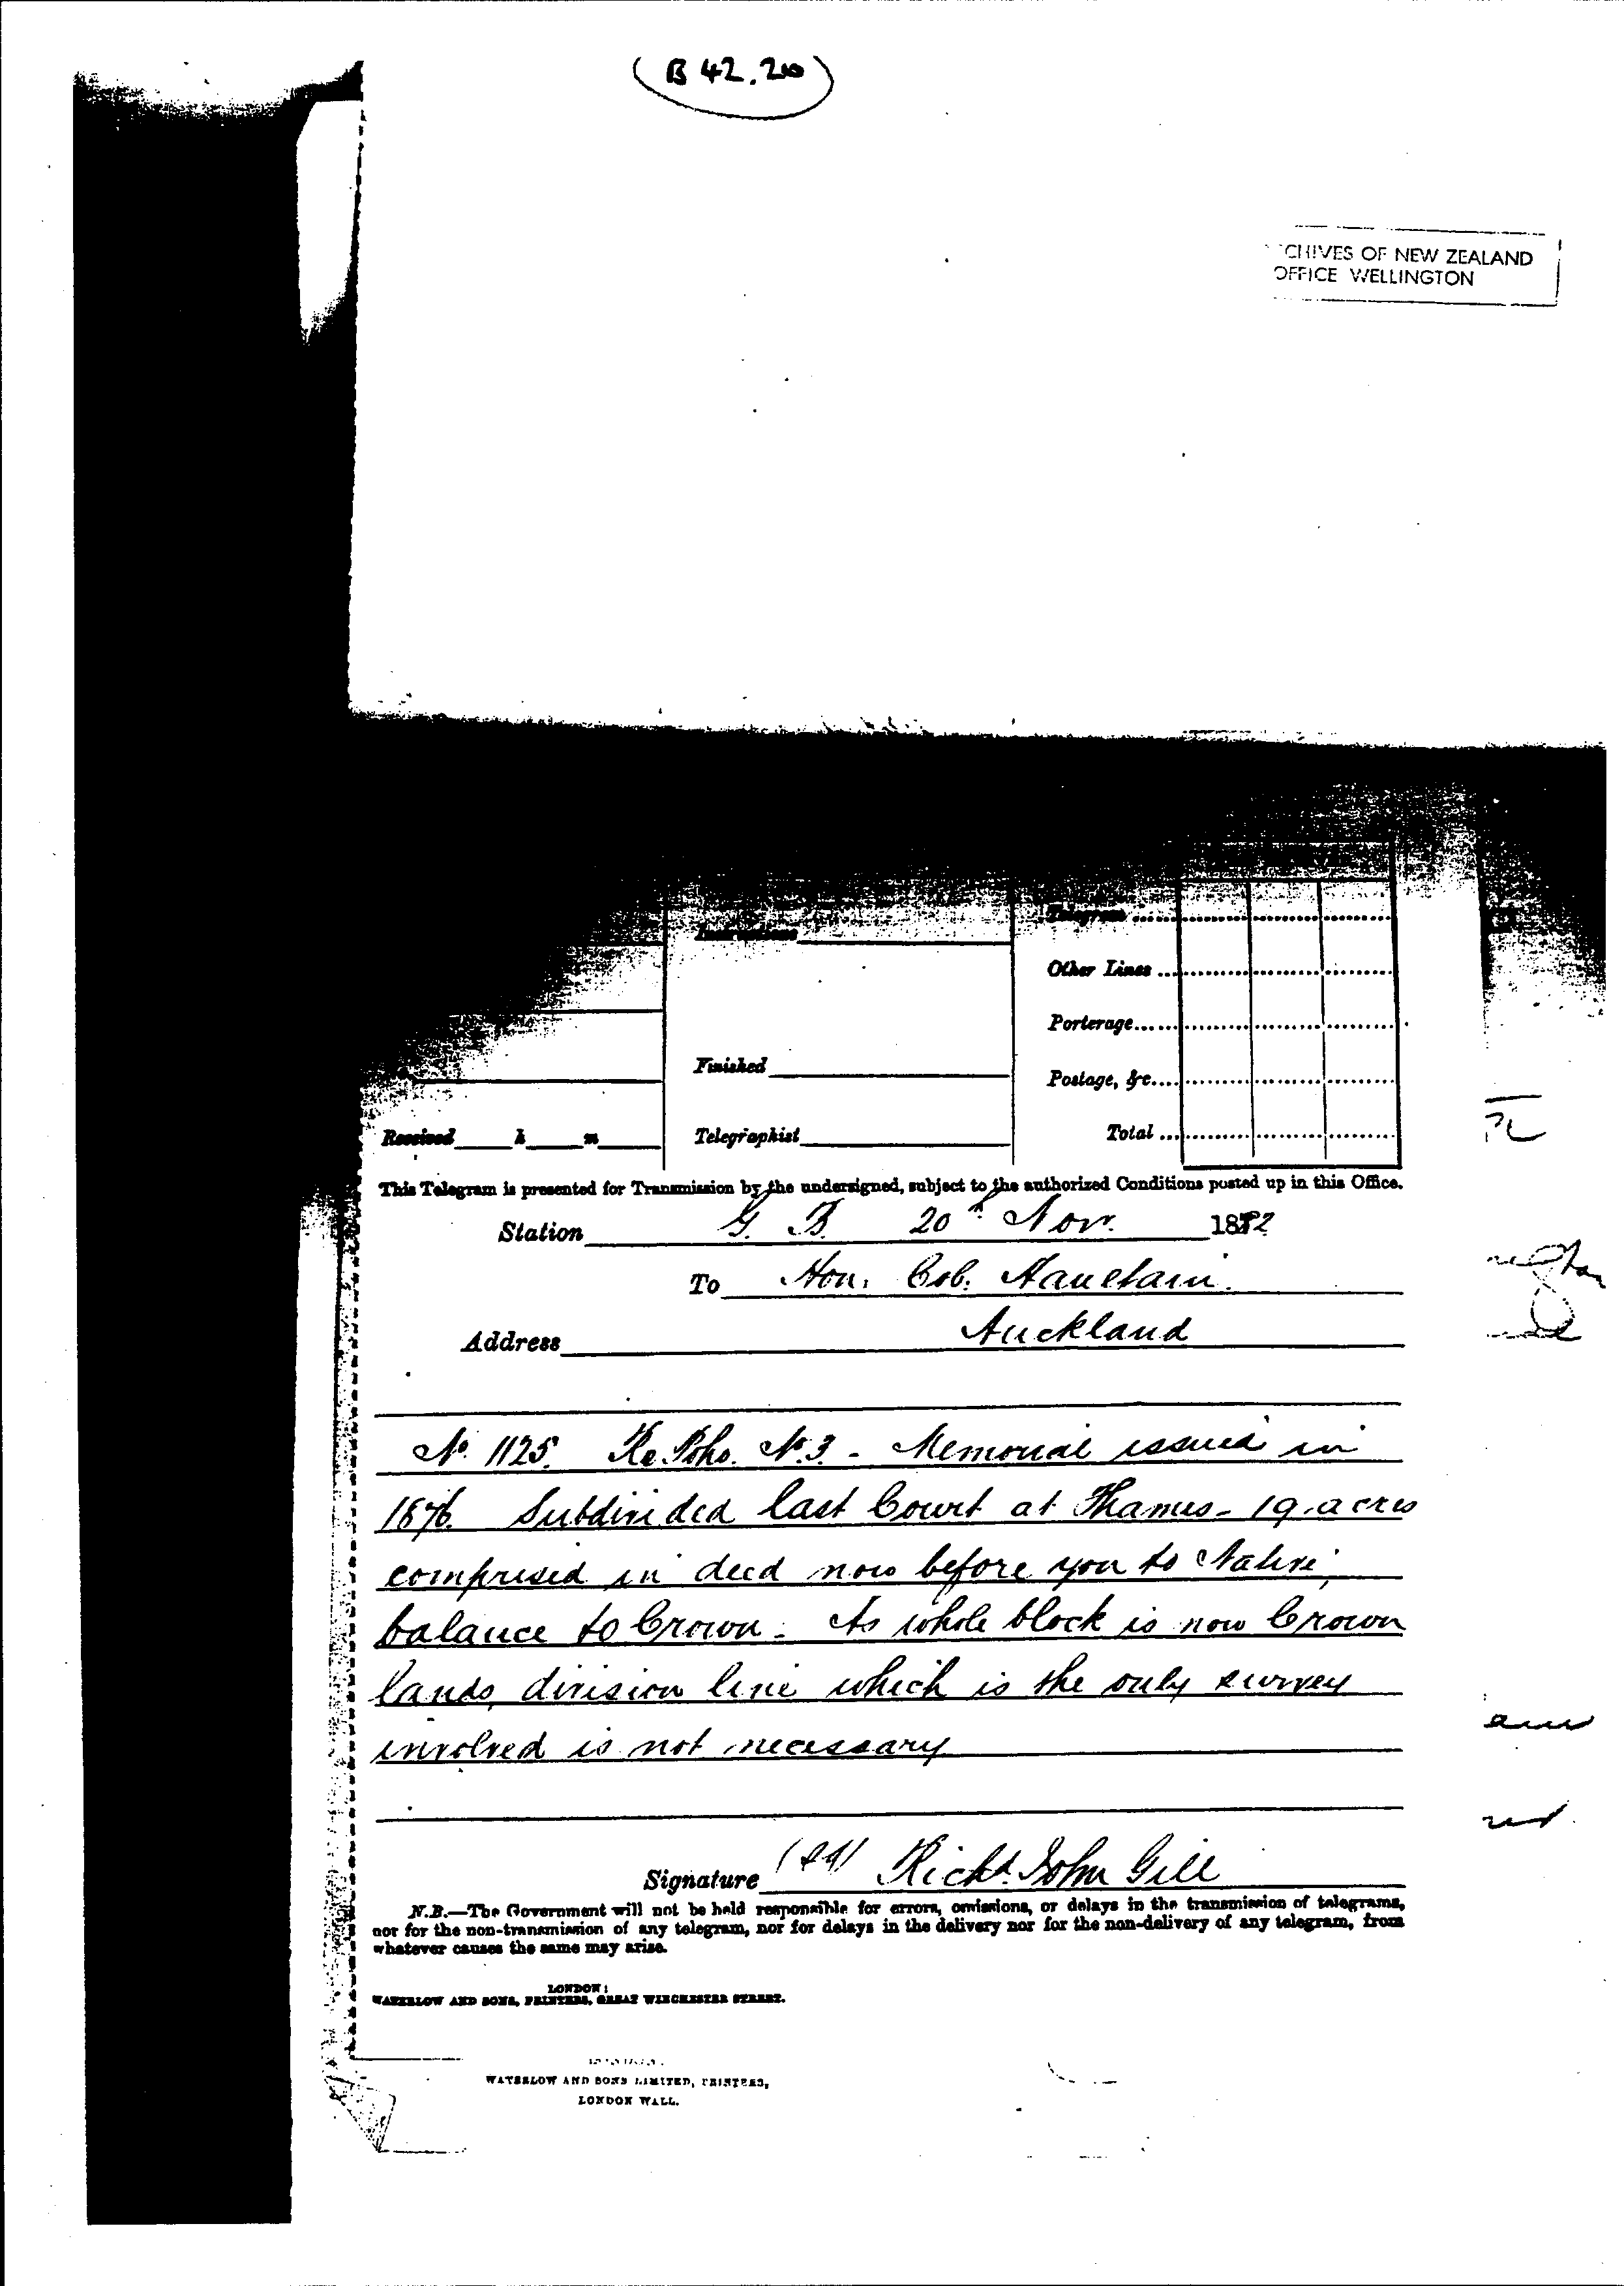 (B 42.20)
CHIVES OF NEW ZEALAND
OFFICE WELLINGTON
Telegram
Other Lines
Porterage
Finished
Postage, &c.
Received h m
Telegraphist
Total
This Telegram is presented for Transmission by the undersigned, subject to the authorized Conditions posted up in this Office.
Station G. B. 20th Nov. 1882
To Hon. Col. Haultain.
Address Auckland
No. 1125. Te Poho. No. 3 - Memorial issued in
1876. Subdivided last Court at Thames - 19 acres
comprised in deed now before you to Native,
balance to Crown. As whole block is now Crown
lands, division line which is the only survey
involved is not necessary
Signature (sd) Richd. John Gill
N.B.—The Government will not be held responsible for errors, omissions, or delays in the transmission of telegrams,
nor for the non-transmission of any telegram, nor for delays in the delivery nor for the non-delivery of any telegram, from
whatever causes the same may arise.
LONDON:
WATERLOW AND SONS, PRINTERS, GREAT WINCHESTER STREET.
WATERLOW AND SONS LIMITED, PRINTERS,
LONDON WALL.